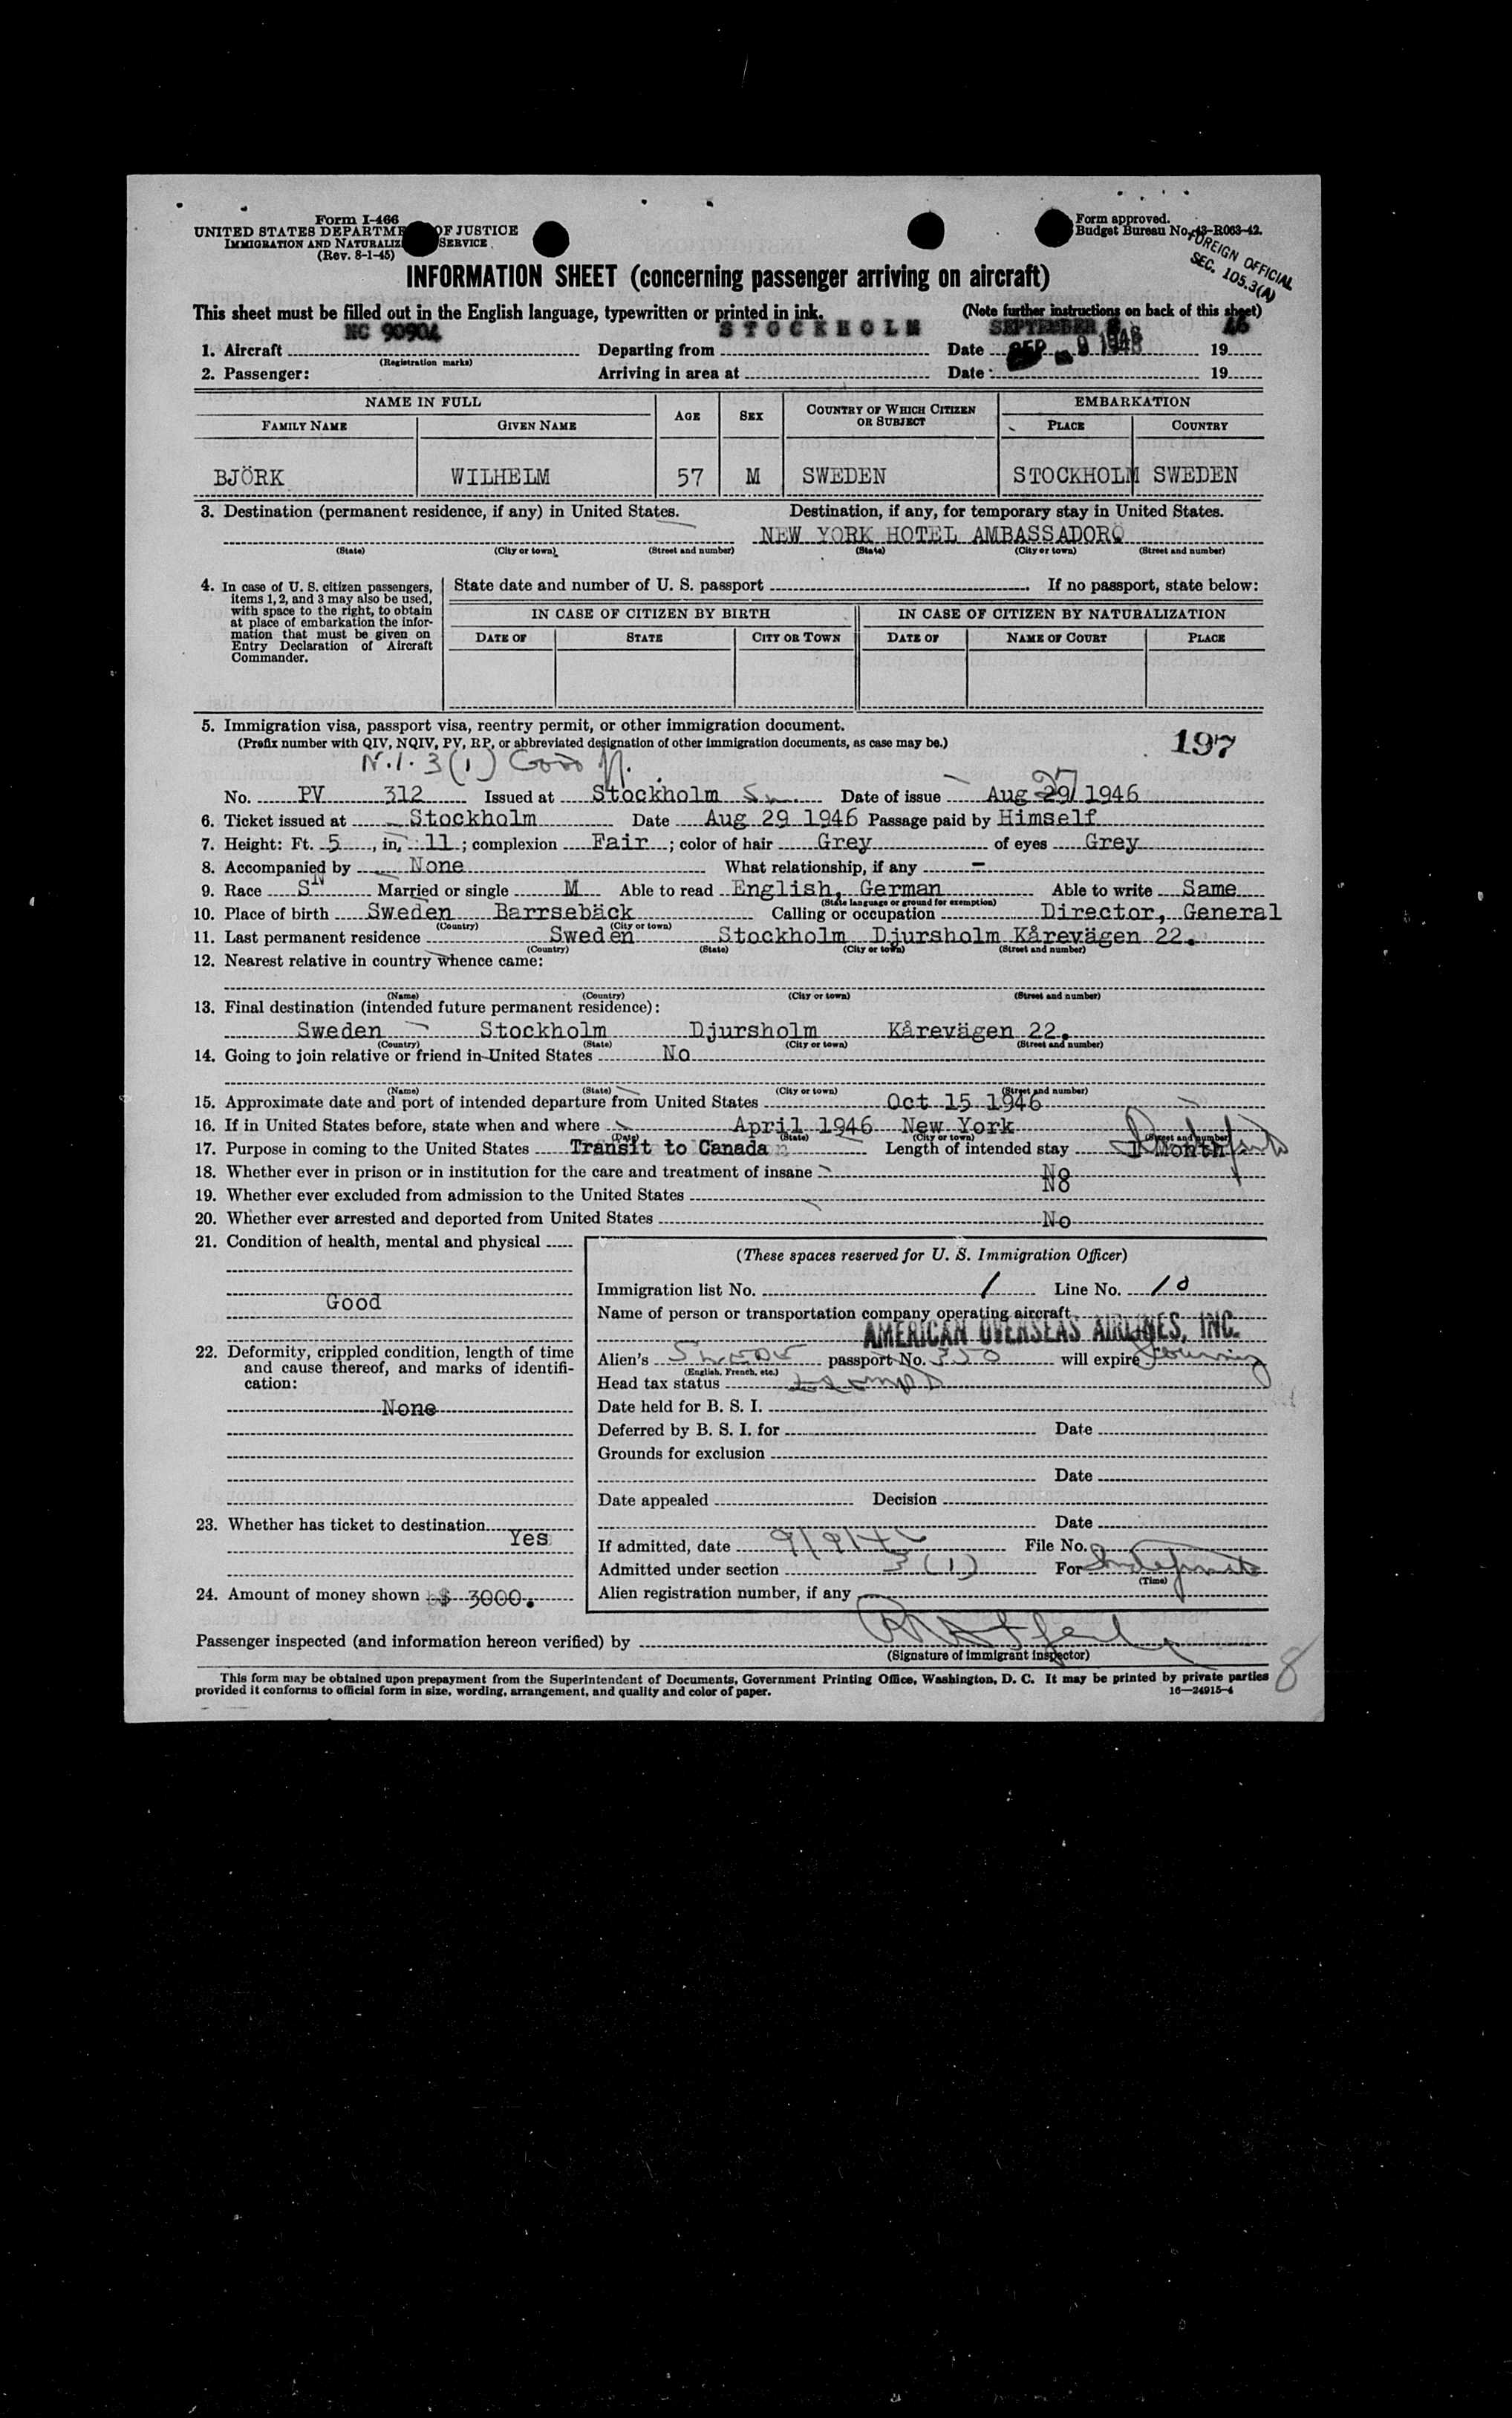 Form I-466
UNITED STATES DEPARTME OF JUSTICE
IMMIGRATION AND NATURALIZ SERVICE
(Rev. 8-1-45)
Form approved.
Budget Bureau No. 43-R063-42.
FOREIGN OFFICIAL
SEC. 105.3(A)
INFORMATION SHEET (concerning passenger arriving on aircraft)
This sheet must be filled out in the English language, typewritten or printed in ink. (Note further instructions on back of this sheet)
NC 90904 STOCKHOLM SEPTEMBER 46
1. Aircraft Departing from Date SEP 9 1946 19
(Registration marks)
2. Passenger: Arriving in area at Date 19
NAME IN FULL AGE SEX COUNTRY OF WHICH CITIZEN OR SUBJECT EMBARKATION
FAMILY NAME GIVEN NAME PLACE COUNTRY
BJÖRK WILHELM 57 M SWEDEN STOCKHOLM SWEDEN
3. Destination (permanent residence, if any) in United States. Destination, if any, for temporary stay in United States.
NEW YORK HOTEL AMBASSADOR
(State) (City or town) (Street and number) (State) (City or town) (Street and number)
4. In case of U. S. citizen passengers, items 1, 2, and 3 may also be used, with space to the right, to obtain at place of embarkation the information that must be given on Entry Declaration of Aircraft Commander.
State date and number of U. S. passport If no passport, state below:
IN CASE OF CITIZEN BY BIRTH IN CASE OF CITIZEN BY NATURALIZATION
DATE OF STATE CITY OR TOWN DATE OF NAME OF COURT PLACE
5. Immigration visa, passport visa, reentry permit, or other immigration document.
(Prefix number with QIV, NQIV, PV, RP, or abbreviated designation of other immigration documents, as case may be.) 197
N.I. 3(1)
27
No. PV 312 Issued at Stockholm Sw. Date of issue Aug 29 1946
6. Ticket issued at Stockholm Date Aug 29 1946 Passage paid by Himself
7. Height: Ft. 5, in. 11; complexion Fair; color of hair Grey of eyes Grey
8. Accompanied by None What relationship, if any -
9. Race SN Married or single M Able to read English, German Able to write Same
(State language or ground for exemption)
10. Place of birth Sweden Barrsebäck Calling or occupation Director, General
(Country) (City or town)
11. Last permanent residence Sweden Stockholm Djursholm Kårevägen 22.
(Country) (State) (City or town) (Street and number)
12. Nearest relative in country whence came:
(Name) (Country) (City or town) (Street and number)
13. Final destination (intended future permanent residence):
Sweden Stockholm Djursholm Kårevägen 22.
(Country) (State) (City or town) (Street and number)
14. Going to join relative or friend in United States No
(Name) (State) (City or town) (Street and number)
15. Approximate date and port of intended departure from United States Oct 15 1946
16. If in United States before, state when and where April 1946 New York
(Date) (State) (City or town) (Street and number)
17. Purpose in coming to the United States Transit to Canada Length of intended stay 1 Month
18. Whether ever in prison or in institution for the care and treatment of insane No
19. Whether ever excluded from admission to the United States No
20. Whether ever arrested and deported from United States No
21. Condition of health, mental and physical
Good
22. Deformity, crippled condition, length of time and cause thereof, and marks of identification:
None
23. Whether has ticket to destination
Yes
24. Amount of money shown $ 3000.
(These spaces reserved for U. S. Immigration Officer)
Immigration list No. 1 Line No. 10
Name of person or transportation company operating aircraft
AMERICAN OVERSEAS AIRLINES, INC.
Alien's Swede passport No. 350 will expire
(English, French, etc.)
Head tax status exempt
Date held for B. S. I.
Deferred by B. S. I. for Date
Grounds for exclusion
Date
Date appealed Decision
Date
If admitted, date 9/9/46 File No.
Admitted under section 3(1) For Indefinite
(Time)
Alien registration number, if any
Passenger inspected (and information hereon verified) by
(Signature of immigrant inspector)
8
This form may be obtained upon prepayment from the Superintendent of Documents, Government Printing Office, Washington, D. C. It may be printed by private parties
provided it conforms to official form in size, wording, arrangement, and quality and color of paper. 16—24915-4